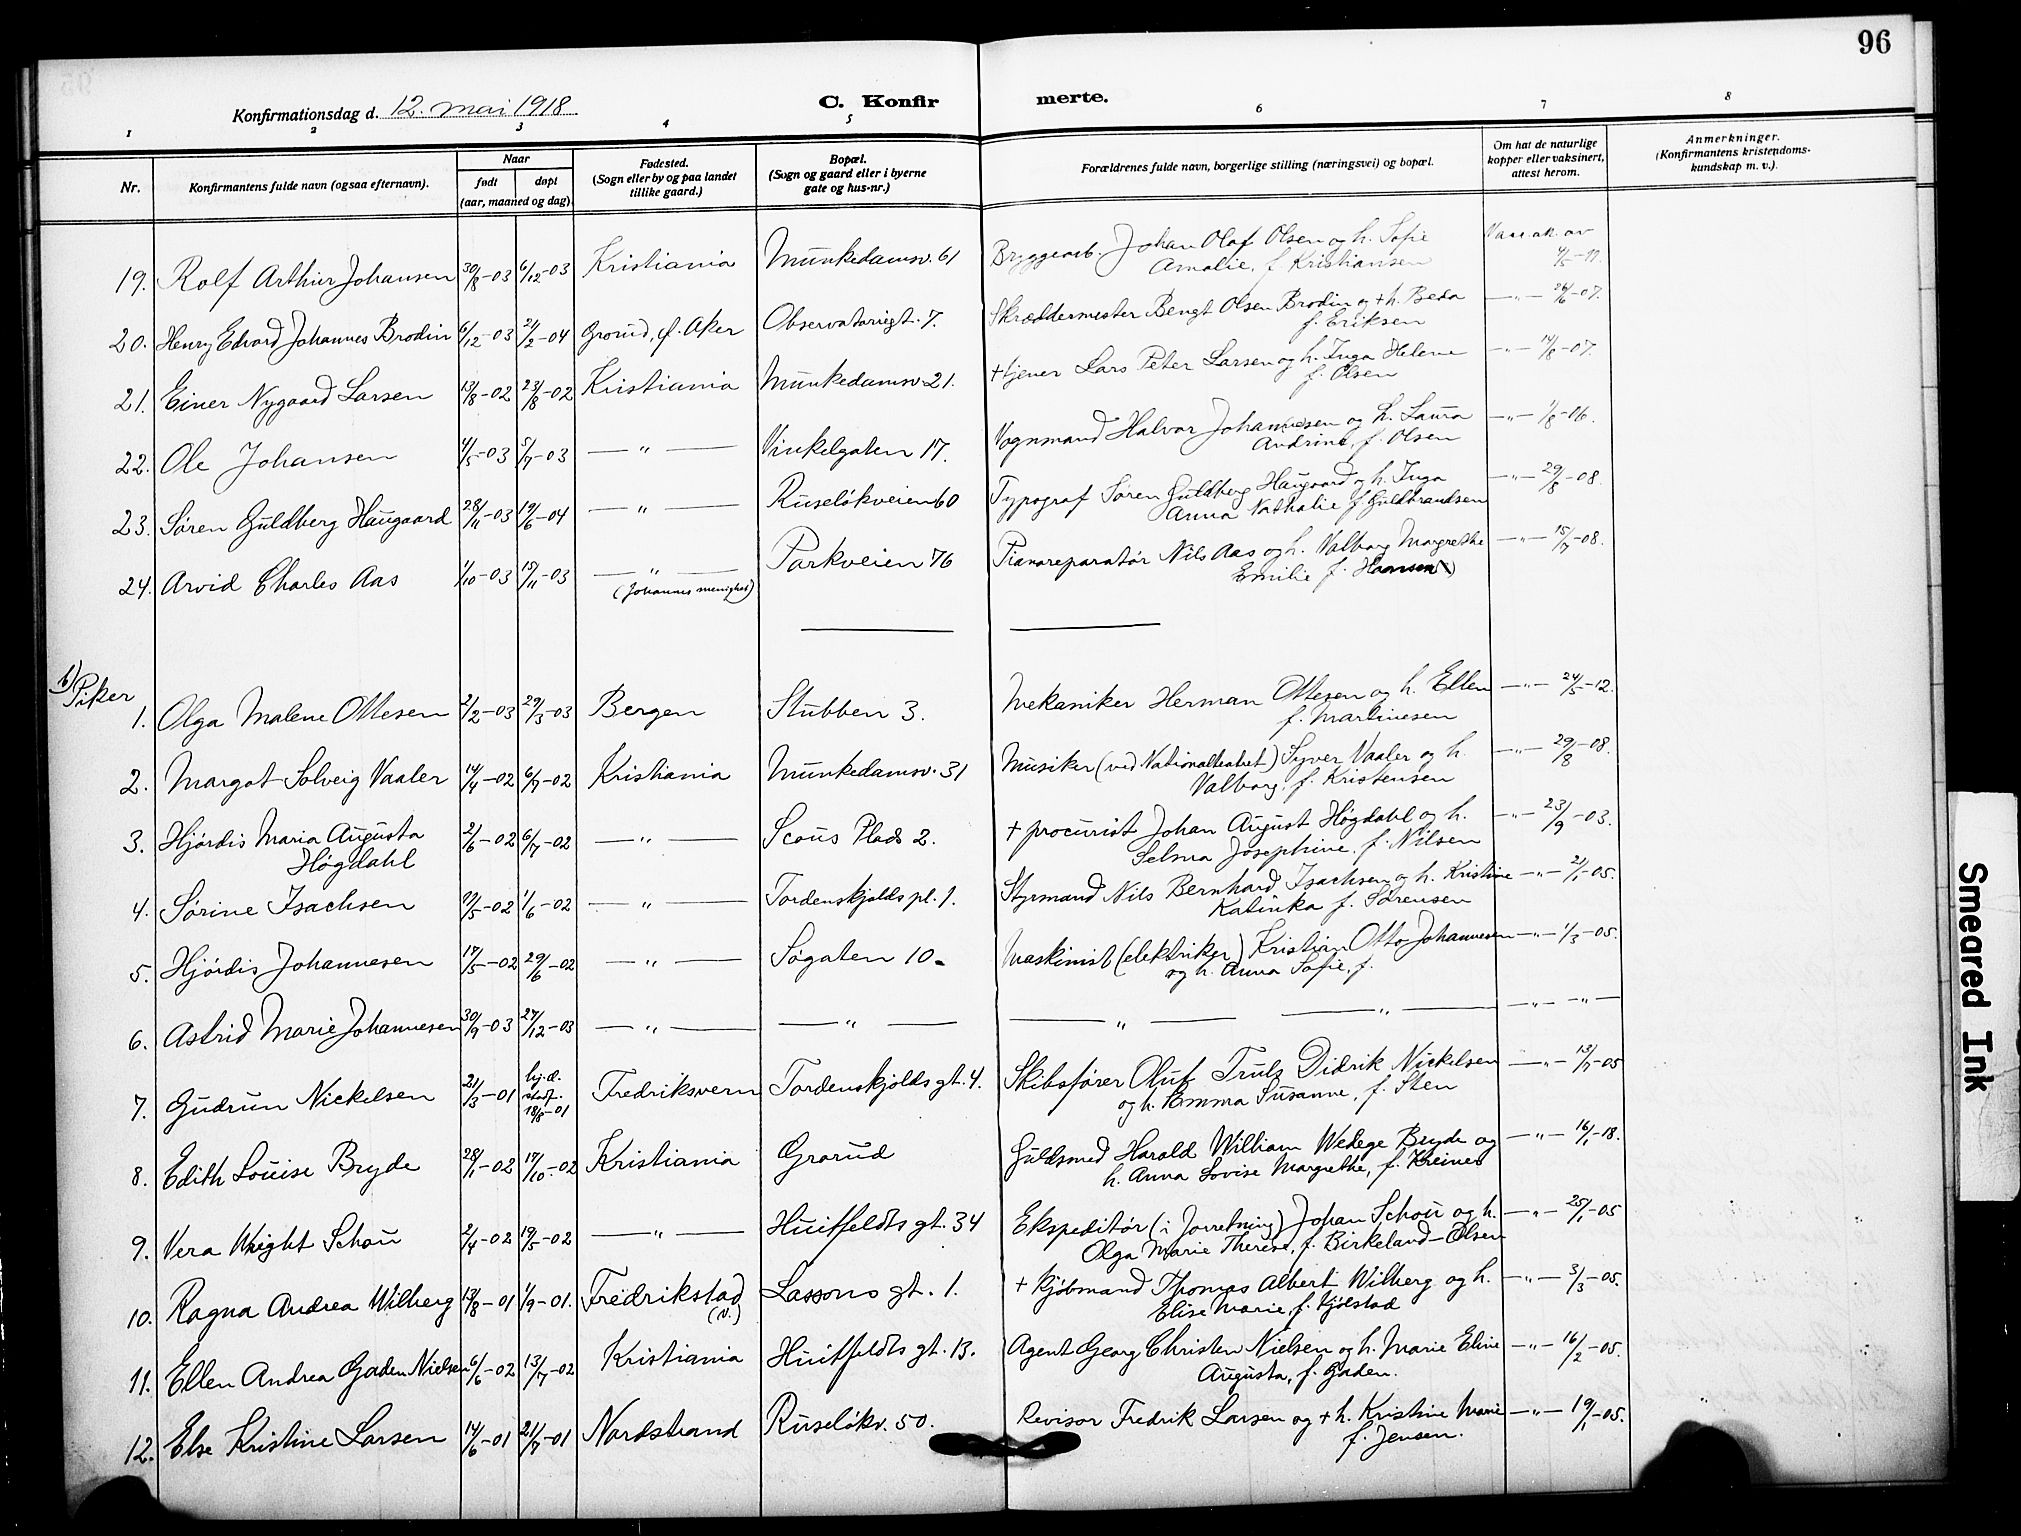 96
Konfirmationsdag d. 12. mai 1918
C. Konfir merte.
1 2 3 4 5 6 7 8
Nr.
Konfirmantens fulde navn (ogsaa efternavn).
Naar
født døpt
(aar, maaned og dag).
Fødested.
(Sogn eller by og paa landet
tillike gaard.)
Bopæl.
(Sogn og gaard eller i byerne
gate og hus-nr.)
Forældrenes fulde navn, borgerlige stilling (næringsvei) og bopæl.
Om hat de naturlige
kopper eller vaksinert,
attest herom.
Anmerkninger.
(Konfirmantens kristendoms-
kundskap m. v.).
19. Rolf Arthur Johansen 30/8-03 6/12-03 Kristiania Munkedamsv. 61 Bryggearb. Johan Olaf Olsen og h. Sofie
Amalie, f. Kristiansen
20. Henry Edvard Johannes Brodin 6/12-03 21/2-04 Grorud, Ø. Aker Observatoriegt. 7. Skræddermester Bengt Olsen Brodin og + h. Beda —"— 26/6-07.
f. Eriksen
21. Einer Nygaard Larsen 13/8-02 23/8-02 Kristiania Munkedamsv. 21. + tjener Lars Peter Larsen og h. Inga Helene —"— 14/8-07.
f. Olsen
22. Ole Johansen 4/5-03 5/7-03 —"— Vinkelgaten 17. Vognmand Halvor Johannesen og h. Laura —"— 1/8-06.
Andrine, f. Olsen
23. Søren Guldberg Haugaard 28/11-03 19/6-04 —"— Ruseløkveien 60 Typograf Søren Guldberg Haugaard og h. Inga —"— 29/8-08.
Anna Nathalie f. Guldbrandsen
24. Arvid Charles Aas 1/10-03 15/11-03 —"— Parkveien 76 Pianoreparatør Nils Aas og h. Valborg Margrethe —"— 15/7-08.
(Johannes menighet) Emilie f. Hansen
b) Piker
1. Olga Malene Ottesen 2/2-03 29/3-03 Bergen Stubben 3. Mekaniker Herman Ottesen og h. Ellen —"— 24/5-12.
f. Martinesen
2. Margot Solveig Vaaler 14/4-02 6/7-02 Kristiania Munkedamsv. 31 Musiker (ved Nationalteatret) Syver Vaaler og h. —"— 29/8-08.
Valborg, f. Kristensen
3. Hjørdis Maria Augusta 2/6-02 6/7-02 —"— Scous Plads 2. + procurist Johan August Høgdahl og h. —"— 23/9-03.
Høgdahl Selma Josephine, f. Nilsen
4. Sørine Isachsen 1/6-02 —"— Tordenskjolds pl. 1. Styrmand Nils Bernhard Isachsen og h. Kristine —"— 2/1-05.
Katinka f. Sørensen
5. Hjørdis Johannesen 17/5-02 29/6-02 —"— Søgaten 10. Maskinist (elektriker) Kristian Otto Johannesen —"— 1/3-05.
og h. Anna Sofie, f.
6. Astrid Marie Johannesen 30/9-03 27/12-03 —"— —"— —"— —"— —"— —"—
7. Gudrun Nickelsen 21/3-01 hj.d. stadf. 18/8-01 Fredriksvern Tordenskjolds gt. 4. Skibsfører Oluf Truls Didrik Nickelsen —"— 13/7-05
og h. Emma Susanne, f. Sten
8. Edith Louise Bryde 28/1-02 17/10-02 Kristiania Grorud Guldsmed Harald William Wedege Bryde og —"— 16/1-18.
h. Anna Lovise Margrethe, f. Kreiner
9. Vera Wright Schou 2/4-02 19/5-02 —"— Huitfeldts gt. 34 Ekspeditør (i forretning) Johan Schou og h. —"— 25/1-05
Olga Marie Therese, f. Birkeland-Olsen
10. Ragna Andrea Wilberg 13/8-01 1/9-01. Fredrikstad Lassons gt. 1. + Kjøbmand Thomas Albert Wilberg og h. —"— 3/3-05.
Elise Marie, f. Kjølstad
11. Ellen Andrea Gaden Nielsen 6/6-02 13/7-02 Kristiania Huitfeldts gt. 13. Agent Georg Christen Nielsen og h. Marie Eline —"— 16/2-05.
Augusta, f. Gaden.
12. Else Kristine Larsen 14/6-01 21/7-01 Nordstrand Ruseløkv. 50. Revisor Fredrik Larsen og + h. Kristine Marie —"— 19/1-05.
f. Jensen.
Smeared Ink